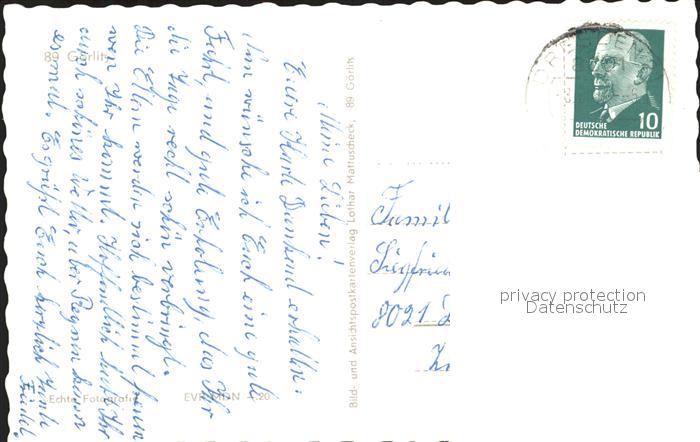 89 Görlitz
Meine Lieben!
Eure Karte Dankend erhalten.
Nun wünsche ich Euch eine gute
Fahrt, und gute Erholung, das Ihr
die Tage recht schön verbringt.
Die Eltern werden sich bestimmt freuen
wenn Ihr kommt. Hoffentlich habt Ihr
auch schönes Wetter, aber Regnen kann
es mal. Es grüßt Euch herzlich
Echte Fotografie
EVP MDN -,20
Bild- und Ansichtspostkartenverlag Lothar Mattuscheck, 89 Görlitz
DRESDEN
10
DEUTSCHE
DEMOKRATISCHE REPUBLIK
Famil
Siegfrie
8021
privacy protection
Datenschutz